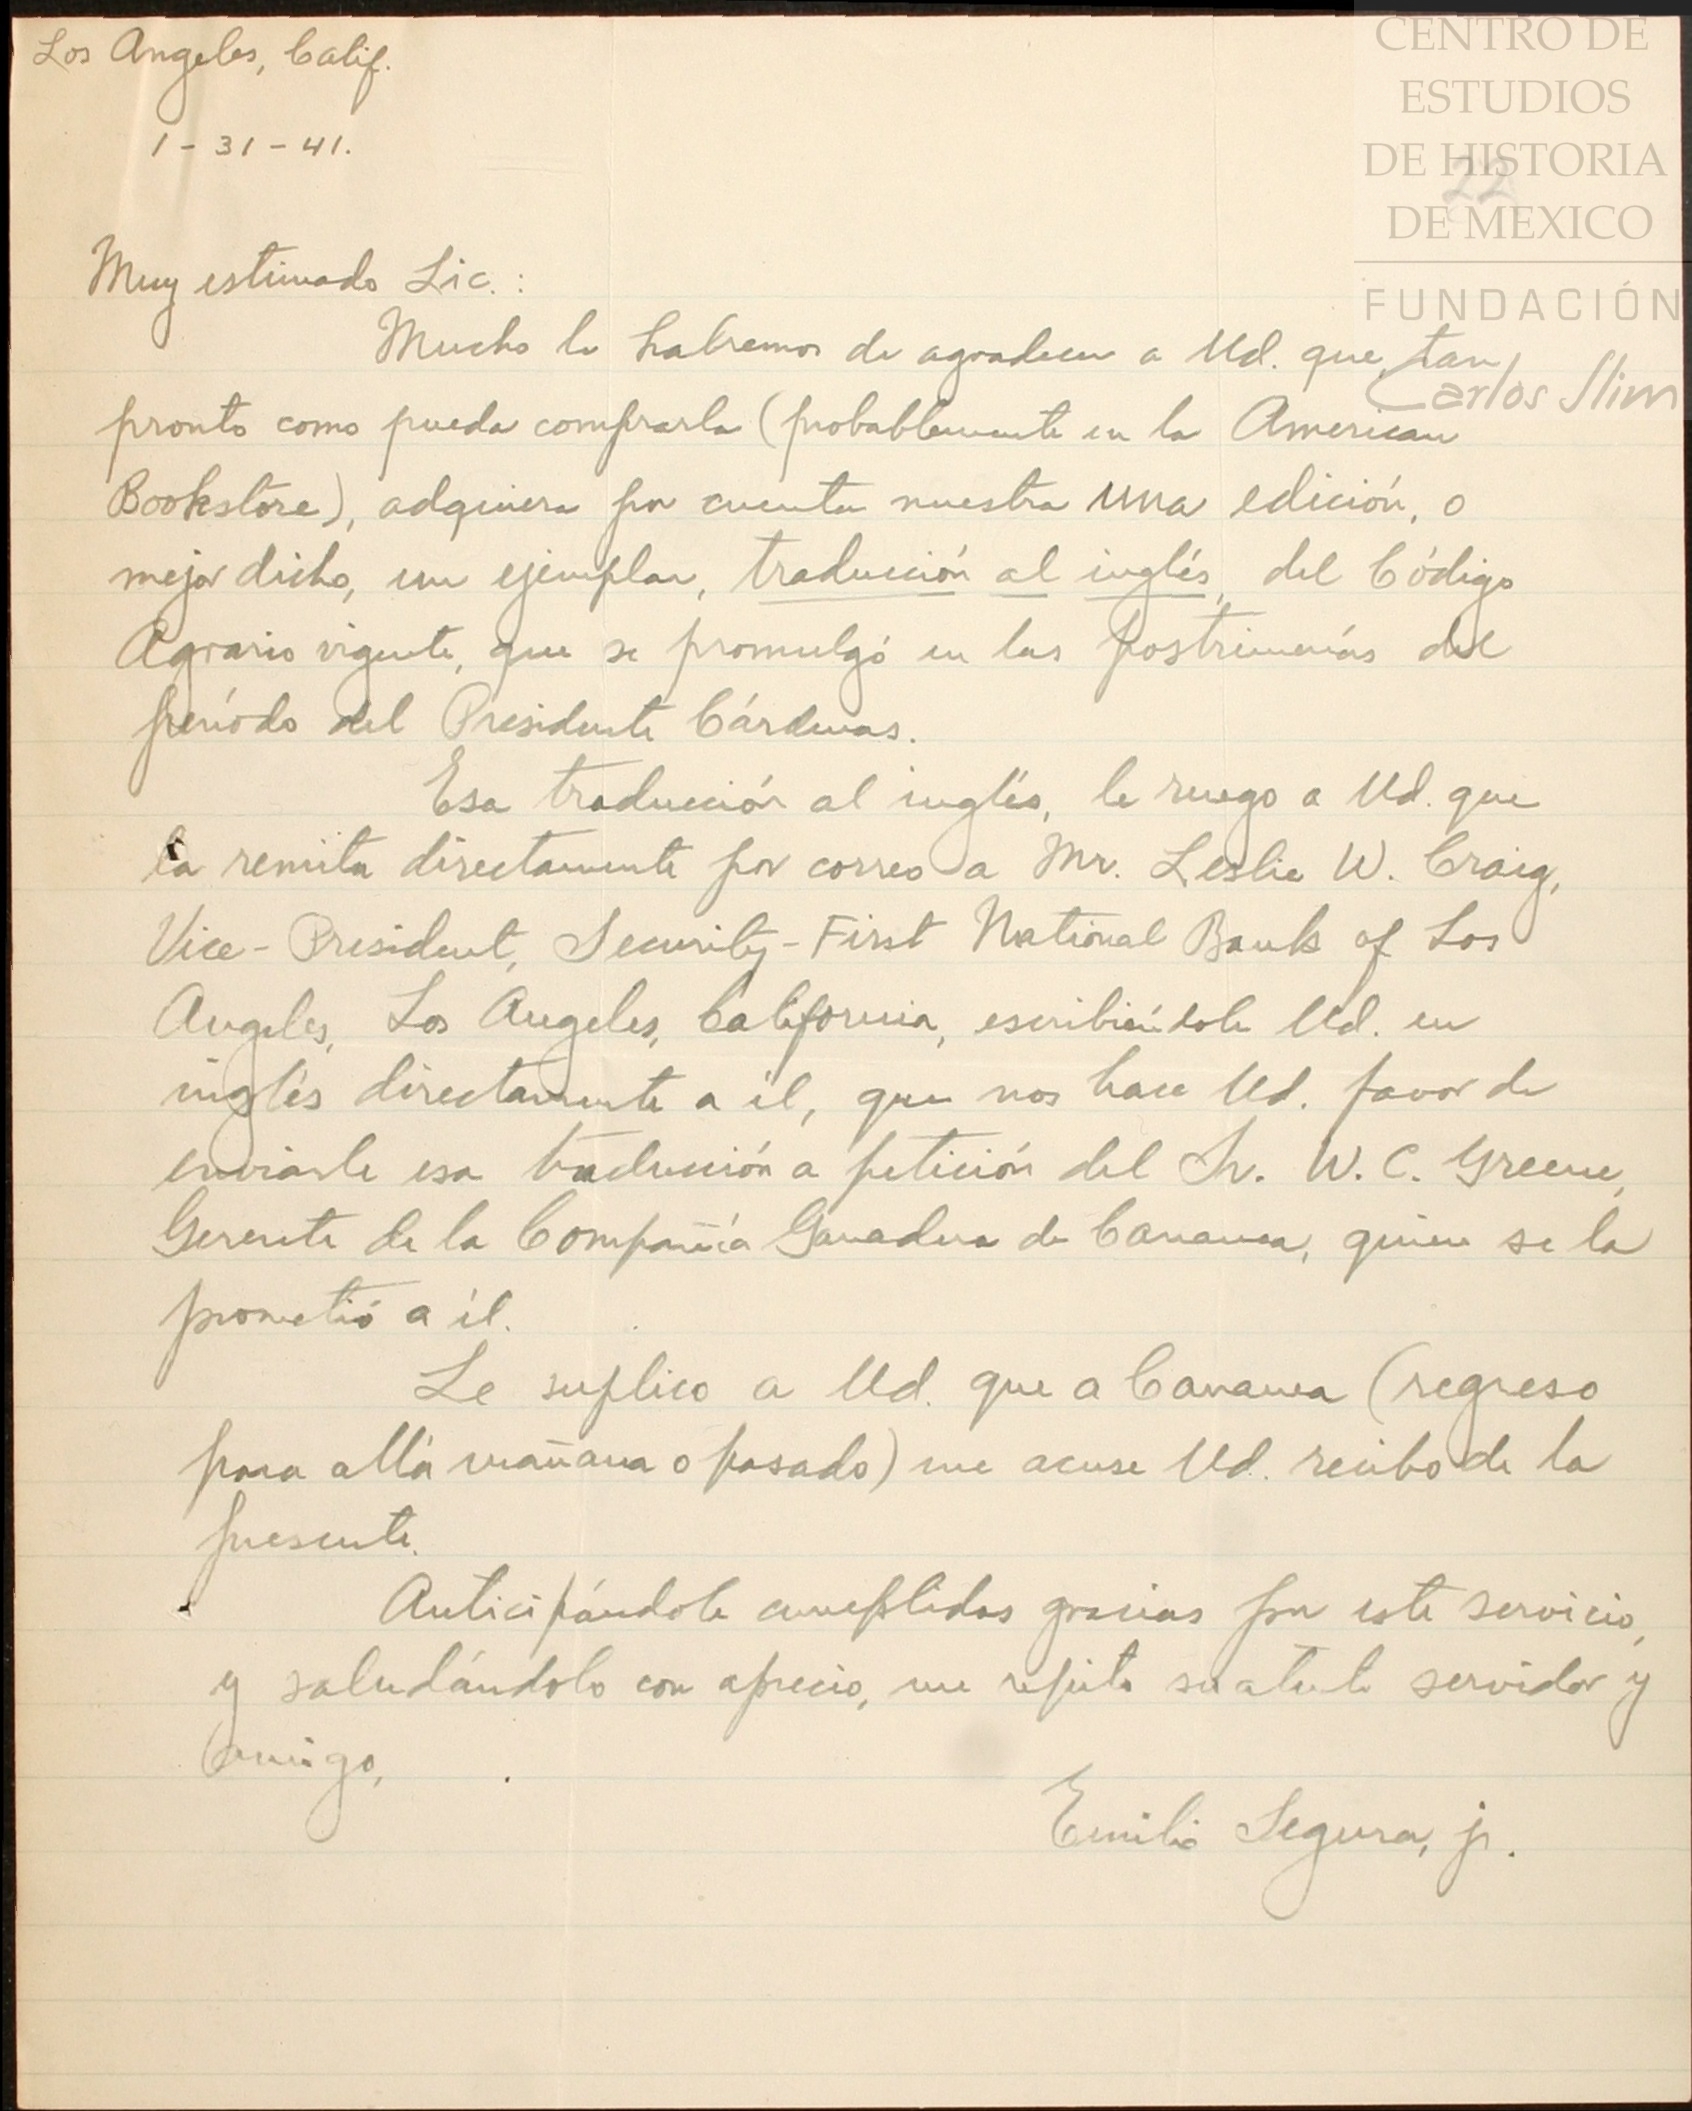 Los Angeles, Calif.
1-31-41.
CENTRO DE
ESTUDIOS
DE HISTORIA
DE MEXICO
FUNDACIÓN
Carlos Slim
22
Muy estimado Lic.:
Mucho le habremos de agradecer a Ud. que, tan
pronto como pueda comprarla (probablemente en la American
Bookstore), adquiera por cuenta nuestra una edición, o
mejor dicho, un ejemplar, traducción al inglés, del Código
Agrario vigente, que se promulgó en las postrimerías del
período del Presidente Cárdenas.
Esa traducción al inglés, le ruego a Ud. que
la remita directamente por correo a Mr. Leslie W. Craig,
Vice-President, Security-First National Bank of Los
Angeles, Los Angeles, California, escribiéndole Ud. en
inglés directamente a él, que nos hace Ud. favor de
enviarle esa traducción a petición del Sr. W. C. Greene,
Gerente de la Compañía Ganadera de Cananea, quien se la
prometió a él.
Le suplico a Ud. que a Cananea (regreso
para allá mañana o pasado) me acuse Ud. recibo de la
presente.
Anticipándole cumplidas gracias por este servicio,
y saludándolo con aprecio, me repito su atento servidor y
amigo,
Emilio Segura, jr.